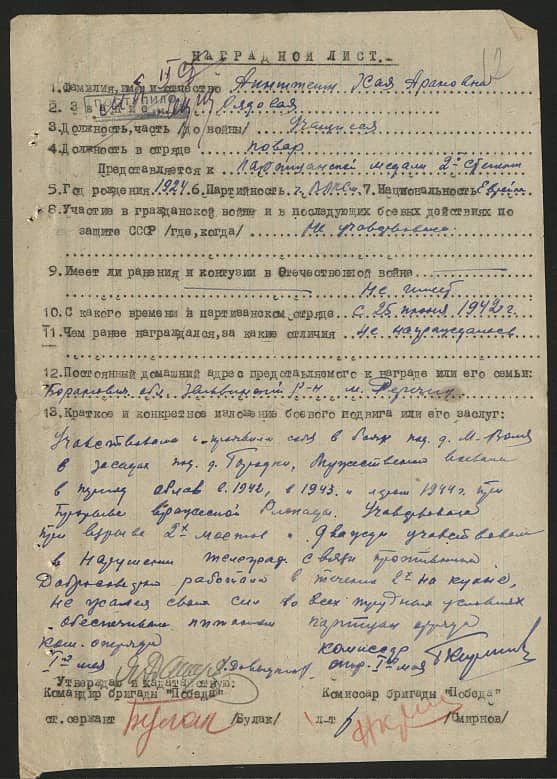 НАГРАДНОЙ ЛИСТ.
1. Фамилия, имя и отчество Хая Ароновна
2. Звание Рядовая
3. Должность, часть /до войны/ Учащийся
4. Должность в отряде повар
Представляется к Партизанской медали 2й степени
5. Год рождения 1924 6. Партийность ч. ВЛКСМ 7. Национальность Еврейка
8. Участие в гражданской войне и в последующих боевых действиях по
защите СССР /где, когда/ Не участвовала
9. Имеет ли ранения и контузии в Отечественной войне
Не имеет
10. С какого времени в партизанском отряде с 25 июня 1942 г.
11. Чем ранее награждался, за какие отличия не награждалась
12. Постоянный домашний адрес представляемого к награде или его семьи:
обл. р-н м.
13. Краткое и конкретное изложение боевого подвига или его заслуг:
Участвовала и проявила себя в боях под д. М. Воля
в засадах под д. Городки, Мужественно воевала
в период облав в 1942, в 1943 и 1944 г. при
прорыве вражеской блокады. Участвовала
при взрыве 2х мостов и дважды участвовала
в нарушении связи противника
Добросовестно работала в течение на кухне,
не жалея своих сил во всех трудных условиях
обеспечивала питанием партизан отряда
Ком. отряда комиссар
1го мая отр. 1го мая
Утверждаю и ходатайствую:
Командир бригады "Победа" Комиссар бригады "Победа"
ст. сержант Булак /Булак/ л-т /Смирнов/